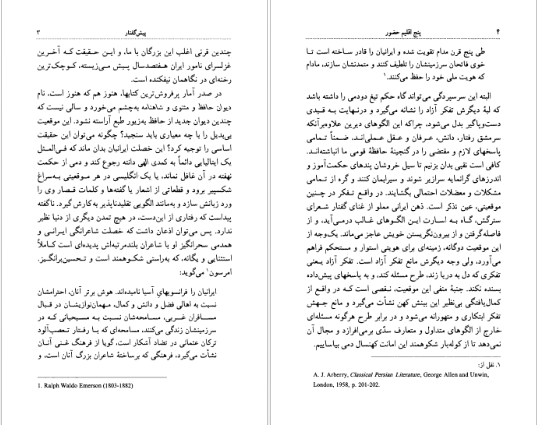 پیش‌گفتار ۳
چندین قرنی اغلب این بزرگان با ما، و این حقیقت که آخرین
غزلسرای نامور ایران هفتصدسال پیش می‌زیسته، کوچک‌ترین
رخنه‌ای در نگاهمان نیفکنده است.
در صدر آمار پرفروش‌ترین کتابها، هنوز هم که هنوز است، نام
دیوان حافظ و مثنوی و شاهنامه به‌چشم می‌خورد و سالی نیست که
چندین دیوان جدید از حافظ به‌زیور طبع آراسته نشود. این موقعیت
بی‌بدیل را با چه معیاری باید سنجید؟ چگونه می‌توان این حقیقت
اساسی را توجیه کرد؟ این خصلت ایرانیان بدان ماند که فی‌المثل
یک ایتالیایی دائماً به کمدی الهی دانته رجوع کند و دمی از حکمت
نهفته در آن غافل نماند، یا یک انگلیسی در هر موقعیتی به‌سراغ
شکسپیر برود و قطعاتی از اشعار یا گفته‌ها و کلمات قصار وی را
ورد زبانش سازد و به‌مانند الگویی تقلیدناپذیر به‌کارش گیرد. ناگفته
پیداست که رفتاری از این‌دست، در هیچ تمدن دیگری از دنیا نظیر
ندارد. پس می‌توان اذعان داشت که خصلت شاعرانگی ایرانی و
همدمی سحرانگیز او با شاعران بلندمرتبه‌اش پدیده‌ای است کاملاً
استثنایی و یگانه، که به‌راستی شکوهمند است و تحسین‌برانگیز.
امرسون¹ می‌گوید:
ایرانیان را فرانسویهای آسیا نامیده‌اند. هوش برتر آنان، احترامشان
نسبت به اهالی فضل و دانش و کمال، مهمان‌نوازیشان در قبال
مسافران غربی، مسامحه‌شان نسبت به مسیحیانی که در
سرزمینشان زندگی می‌کنند، مسامحه‌ای که با رفتار تعصب‌آلود
ترکان عثمانی در تضاد آشکار است، گویا از فرهنگ غنی آنان
نشأت می‌گیرد، فرهنگی که برساختهٔ شاعران بزرگ آنان است، و
1. Ralph Waldo Emerson (1803-1882)
۴ پنج اقلیم حضور
طی پنج قرن مدام تقویت شده و ایرانیان را قادر ساخته است تا
خوی فاتحان سرزمینشان را تلطیف کنند و متمدنشان سازند، مادام
که هویت ملی خود را حفظ می‌کنند.¹
البته این سرسپردگی می‌تواند گاه حکم تیغ دودمی را داشته باشد
که لبهٔ دیگرش تفکر آزاد را نشانه می‌گیرد و درنهایت به قیدی
دست‌وپاگیر بدل می‌شود، چراکه این الگوهای دیرین علاوه‌برآنکه
سرمشق رفتار، دانش، عرفان و عقل عملی‌اند، ضمناً تمامی
پاسخهای لازم و مقتضی را در گنجینهٔ حافظهٔ قومی ما انباشته‌اند.
کافی است نقبی بدان بزنیم تا سیل خروشان پندهای حکمت‌آموز و
اندرزهای گرانمایه سرازیر شوند و سیرابمان کنند و گره از تمامی
مشکلات و معضلات احتمالی بگشایند. در واقع تفکر در چنین
موقعیتی، عین تذکر است. ذهن ایرانی مملو از غنای گفتار شعرای
سترگش، گاه به اسارت این الگوهای غالب درمی‌آید، و از
فاصله‌گرفتن و از بیرون‌نگریستن خویش عاجز می‌ماند. یک‌وجه از
این موقعیت دوگانه، زمینه‌ای برای هویتی استوار و مستحکم فراهم
می‌آورد، ولی وجه دیگرش مانع تفکر آزاد است. تفکر آزاد یعنی
تفکری که دل به دریا زند، طرح مسئله کند، و به پاسخهای پیش‌داده
بسنده نکند. جنبهٔ منفی این موقعیت، نقصی است که در واقع از
کمال‌یافتگی بی‌نظیر این بینش کهن نشأت می‌گیرد و مانع جهش
تفکر ابتکاری و متهورانه می‌شود و در برابر طرح هرگونه مسئله‌ای
خارج از الگوهای متداول و متعارف سدّی برمی‌افرازد و مجال آن
نمی‌دهد تا از کوله‌بار شکوهمند این امانت کهنسال دمی بیاساییم.
۱. نقل از:
A. J. Arberry, Classical Persian Literature, George Allen and Unwin,
London, 1958, p. 201-202.